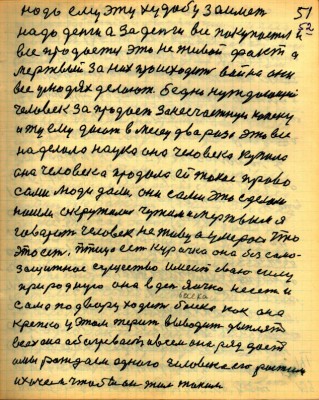 51
52
надо ему эту худобу займет
надо деньга За деньги все покупается и
все продается Это не живой факт а
мертвый За них происходит война они
все в людях делают. Бедный нуждающий
человек За продает За несчастную копейку
и ту ему дают в месяц два раза Это все
наделала наука она человека купила
она человека продала ей такое право
сами люди дали, они сами Это сделали
нашим окружили чужим и мертвым я
говорю человек не живу а умераю Что
Это есть. птица есть курочка она без само-
защитное существо имеет свою силу
природную она в ден яичко несет и
бабка
само по двору ходит как она
крепко у этом терпит выводит цыплят
всех она обогревает и всем она ряд дает
а мы рождаем одного человека его растим
и хочем чтобы он жил таким